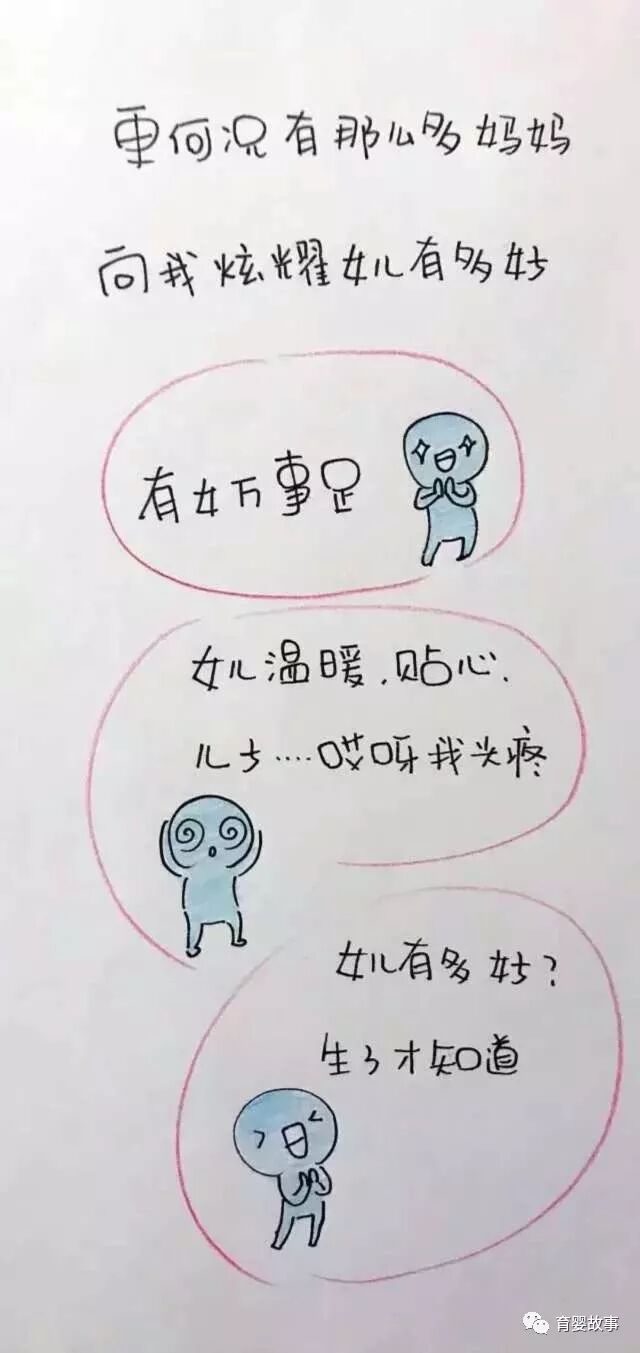 更何况有那么多妈妈
向我炫耀女儿有多好
有女万事足
女儿温暖.贴心.
儿子....哎呀我头疼
女儿有多好?
生了才知道
育婴故事